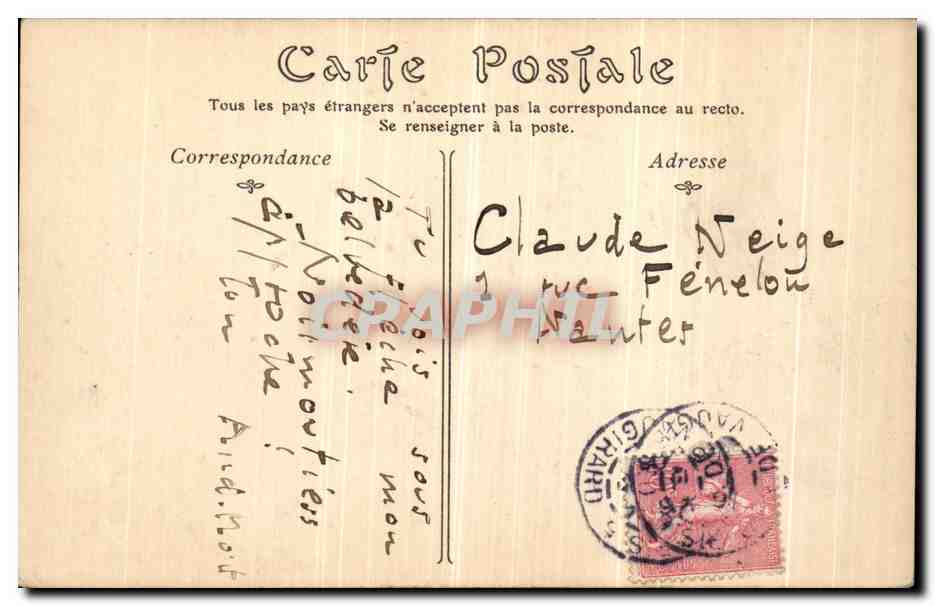 Carte Postale
Tous les pays étrangers n'acceptent pas la correspondance au recto.
Se renseigner à la poste.
Correspondance
Tu vois sous
la flèche mon
belvédère.
Noirmoutiers
approche !
Ton
Adresse
Claude Neige
1 rue Fénelon
Nantes
CRAPHIL
VAUGIRARD